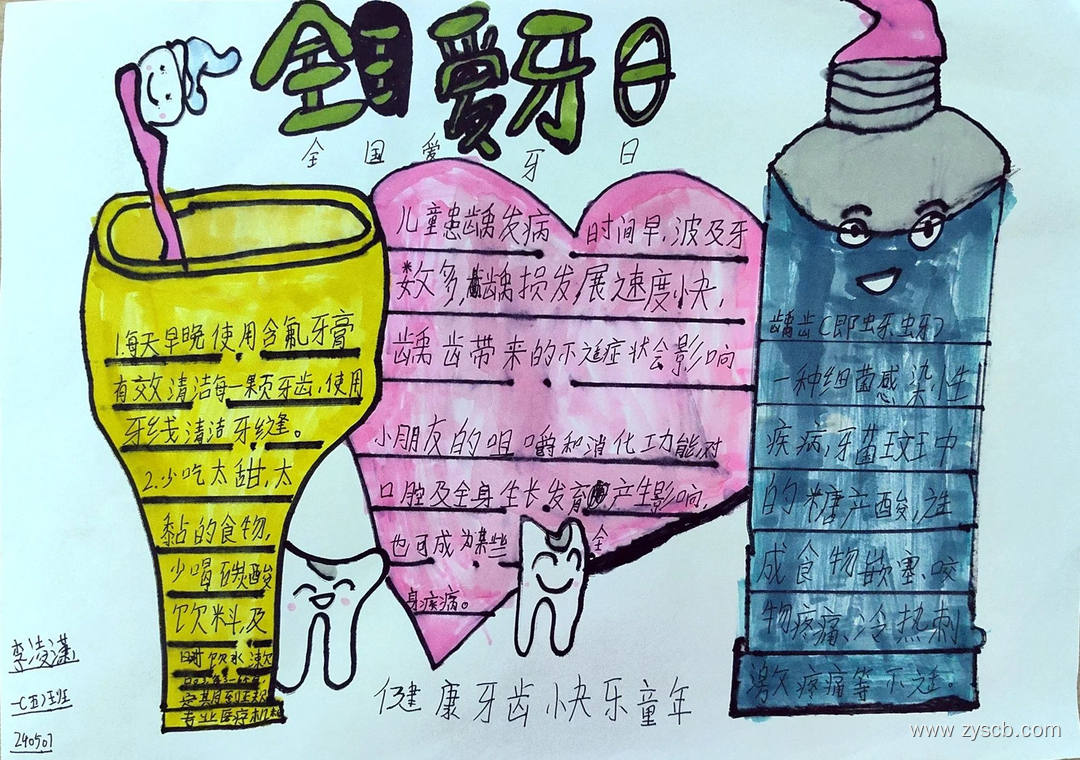 全国爱牙日
全国爱牙日
1.每天早晚使用含氟牙膏
有效清洁每一颗牙齿,使用
牙线清洁牙缝。
2.少吃太甜,太
黏的食物,
少喝碳酸
饮料,及
时饮水漱
专业医疗机构
儿童患龋发病 时间早,波及牙
数多,龋损发展速度快,
龋齿带来的不适症状会影响
小朋友的咀嚼和消化功能,对
口腔及全身生长发育产生影响,
也可成为某些 全
身疾病。
龋齿(即虫牙、蛀牙)
一种细菌感染小生
疾病,牙菌斑中
的糖产酸,
成食物嵌塞、咬
物疼痛、冷热刺
激疼痛等不适。
健康牙齿快乐童年
李凌潇
一(五)班
240507
www.zyscb.com